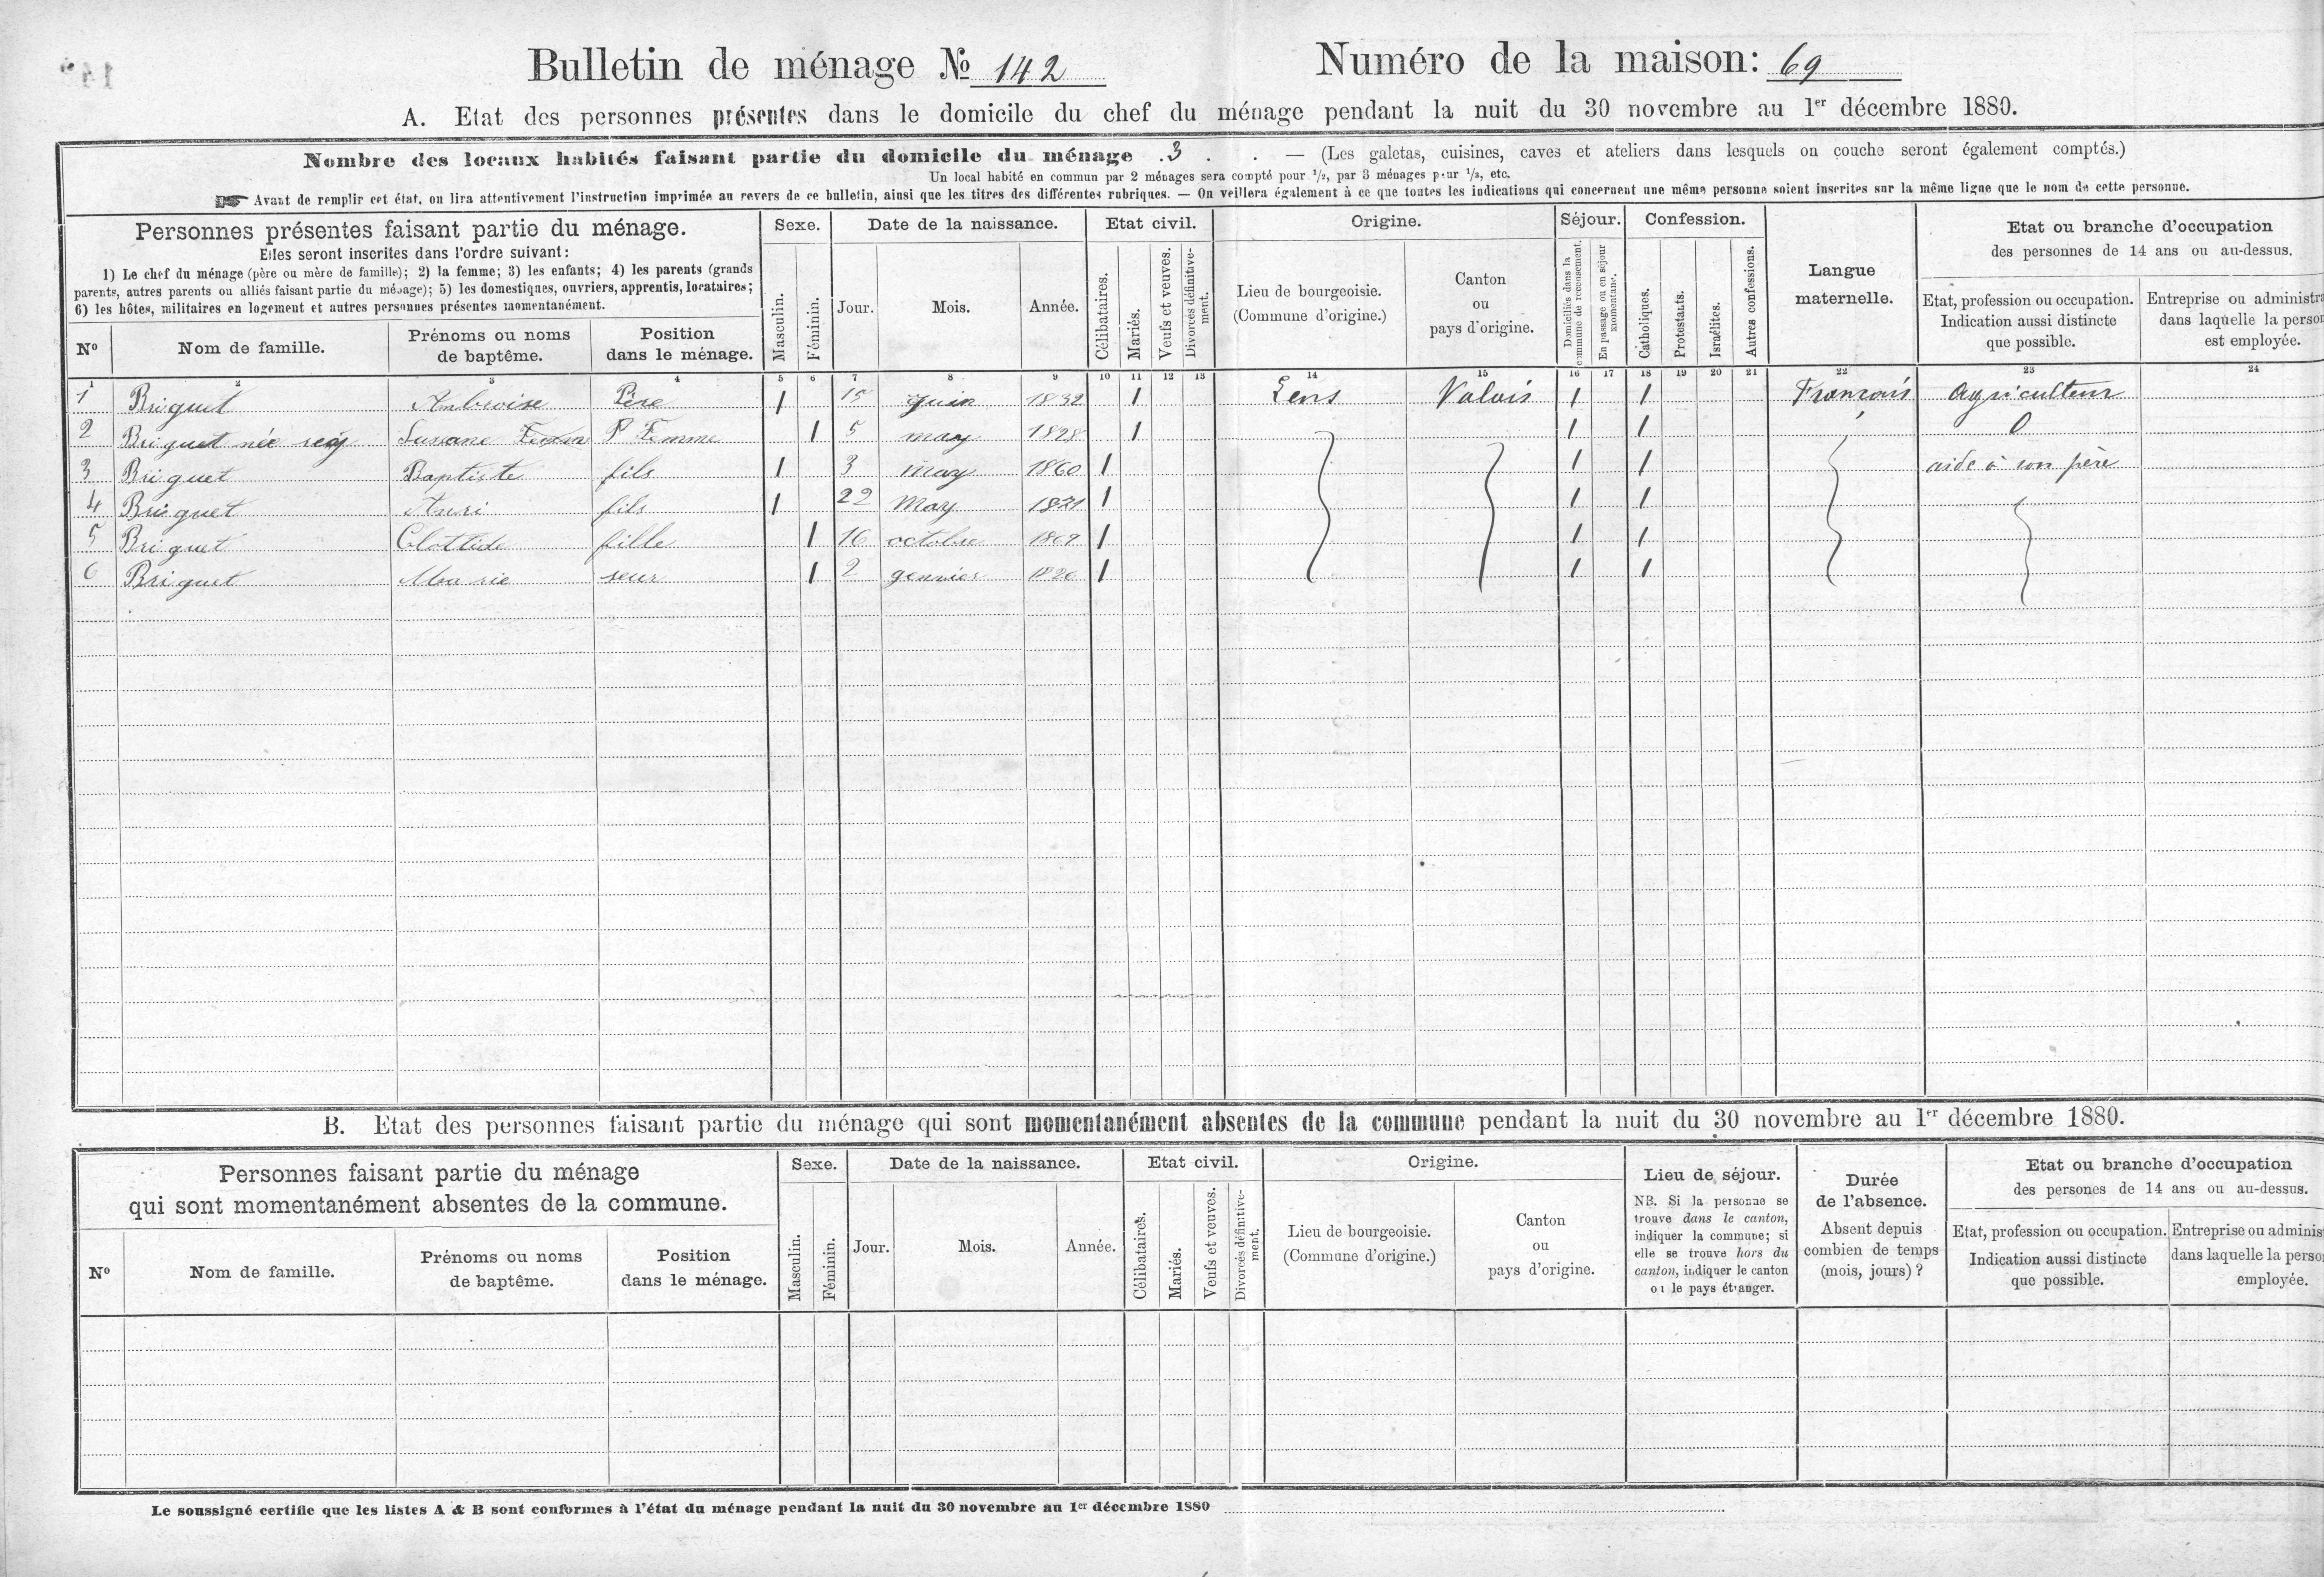 Bulletin de ménage № 142
Numéro de la maison: 69
A. Etat des personnes présentes dans le domicile du chef du ménage pendant la nuit du 30 novembre au 1er décembre 1880.
Nombre des locaux habités faisant partie du domicile du ménage .3 . . — (Les galetas, cuisines, caves et ateliers dans lesquels on couche seront également comptés.)
Un local habité en commun par 2 ménages sera compté pour 1/2, par 3 ménages pour 1/3, etc.
Avant de remplir cet état, on lira attentivement l'instruction imprimée au revers de ce bulletin, ainsi que les titres des différentes rubriques. — On veillera également à ce que toutes les indications qui concernent une même personne soient inscrites sur la même ligne que le nom de cette personne.
Personnes présentes faisant partie du ménage.
Elles seront inscrites dans l'ordre suivant:
1) Le chef du ménage (père ou mère de famille); 2) la femme; 3) les enfants; 4) les parents (grands
parents, autres parents ou alliés faisant partie du ménage); 5) les domestiques, ouvriers, apprentis, locataires;
6) les hôtes, militaires en logement et autres personnes présentes momentanément.
No Nom de famille.
Prénoms ou noms
de baptême.
Position
dans le ménage.
Sexe.
Masculin.
Féminin.
Date de la naissance.
Jour. Mois. Année.
Etat civil.
Célibataires.
Mariés.
Veufs et veuves.
Divorcés définitive-
ment.
Origine.
Lieu de bourgeoisie.
(Commune d'origine.)
Canton
ou
pays d'origine.
Séjour.
Domiciliés dans la
commune de recensement.
En passage ou en séjour
momentané.
Confession.
Catholiques.
Protestants.
Israélites.
Autres confessions.
Langue
maternelle.
Etat ou branche d'occupation
des personnes de 14 ans ou au-dessus.
Etat, profession ou occupation.
Indication aussi distincte
que possible.
Entreprise ou administra
dans laquelle la person
est employée.
1 2 3 4 5 6 7 8 9 10 11 12 13 14 15 16 17 18 19 20 21 22 23 24
1 Briguet Ambroise Père 1 15 juin 1832 1 Lens Valais 1 1 Francais Agriculteur
2 Briguet née Susane Femme 1 5 may 1828 1 1 1 0
3 Briguet Baptiste fils 1 3 may 1860 1 1 1 aide à son père
4 Briguet fils 1 22 May 1 1 1
5 Briguet fille 1 16 octobre 1 1 1
6 Briguet Marie seur 1 2 1 1 1
B. Etat des personnes faisant partie du ménage qui sont momentanément absentes de la commune pendant la nuit du 30 novembre au 1er décembre 1880.
Personnes faisant partie du ménage
qui sont momentanément absentes de la commune.
No Nom de famille.
Prénoms ou noms
de baptême.
Position
dans le ménage.
Sexe.
Masculin.
Féminin.
Date de la naissance.
Jour. Mois. Année.
Etat civil.
Célibataires.
Mariés.
Veufs et veuves.
Divorcés définitive-
ment.
Origine.
Lieu de bourgeoisie.
(Commune d'origine.)
Canton
ou
pays d'origine.
Lieu de séjour.
NB. Si la personne se
trouve dans le canton,
indiquer la commune; si
elle se trouve hors du
canton, indiquer le canton
ou le pays étranger.
Durée
de l'absence.
Absent depuis
combien de temps
(mois, jours) ?
Etat ou branche d'occupation
des persones de 14 ans ou au-dessus.
Etat, profession ou occupation.
Indication aussi distincte
que possible.
Entreprise ou adminis
dans laquelle la perso
employée.
Le soussigné certifie que les listes A & B sont conformes à l'état du ménage pendant la nuit du 30 novembre au 1er décembre 1880